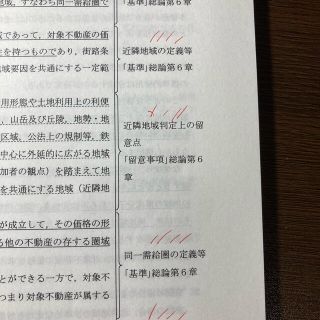 地域、すなわち同一需給圏で
「基準」総論第6章
域であって、対象不動産の価
性を持つものであり、街路条
域要因を共通にする一定範
近隣地域の定義等
「基準」総論第6章
用形態や土地利用上の利便
、山岳及び丘陵、地勢・地
区域、公法上の規制等、鉄
中心に外延的に広がる地域
加者の観点）を踏まえて地
を共通にする地域（近隣地
近隣地域判定上の留
意点
「留意事項」総論第6
章
が成立して、その価格の形
る他の不動産の存する圏域
とができる一方で、対象不
つまり対象不動産が属する
同一需給圏の定義等
「基準」総論第6章